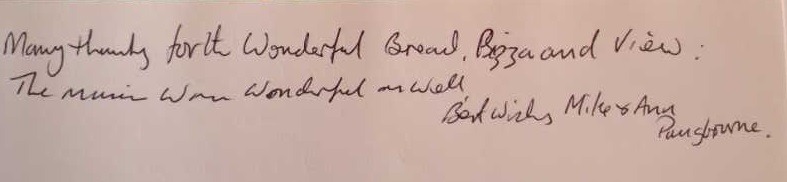 Many thanks for the Wonderful Bread, Pizza and View.
The music was Wonderful as well
Best wishes Mike & Ann
Pangbourne.